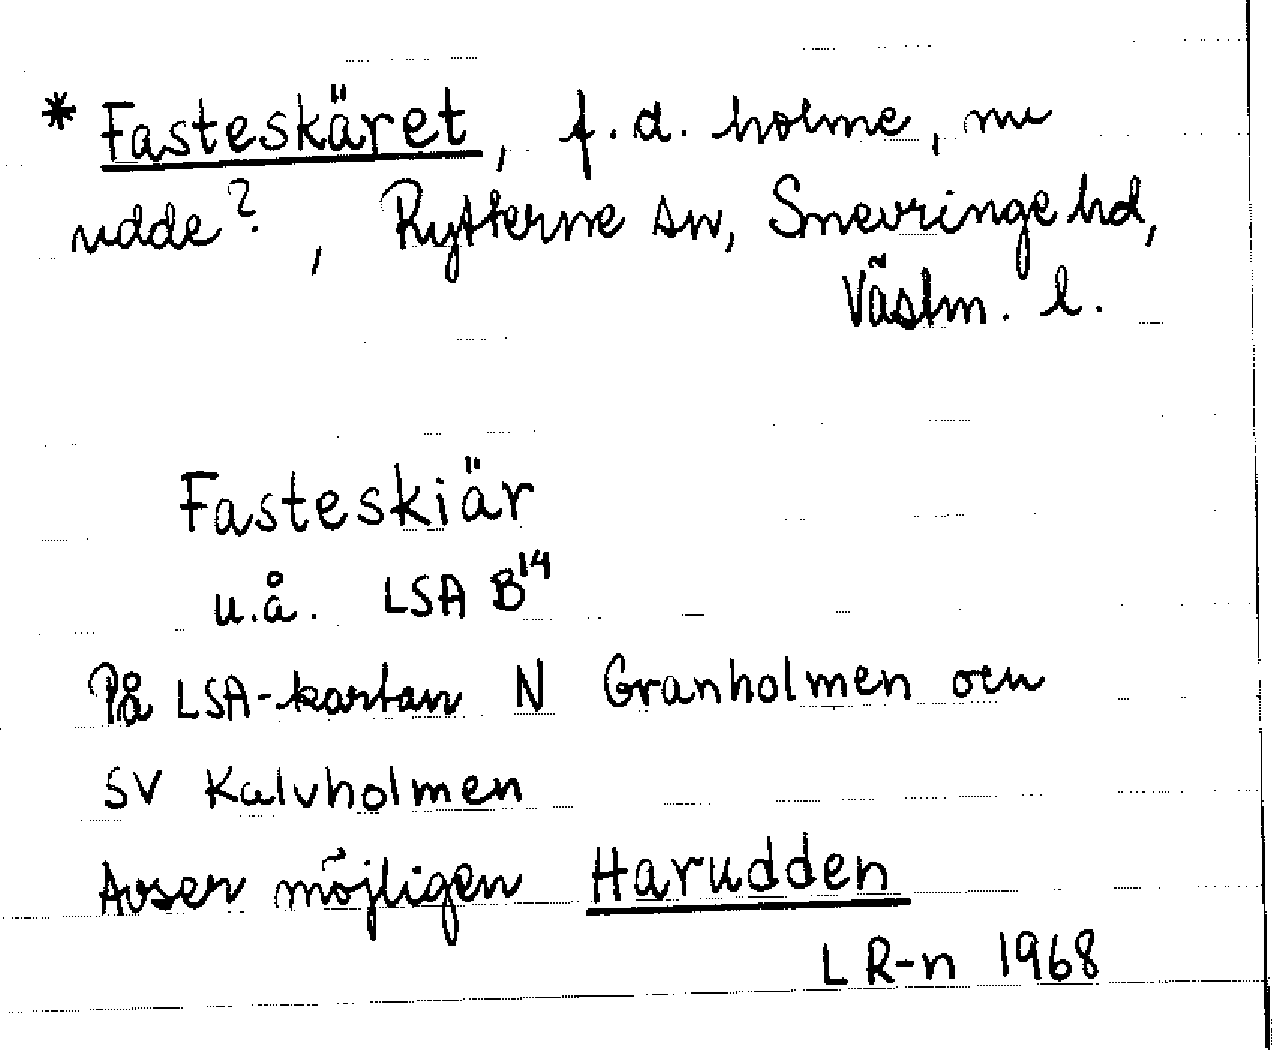 * Fasteskäret, f.d. holme, nu
udde?, Rytterne sn, Snevringe hd,
Västm. l.
Fasteskiär
u.å. LSA B14
På LSA-kartan N Granholmen och
SV Kalvholmen
Avser möjligen Harudden
L R-n 1968